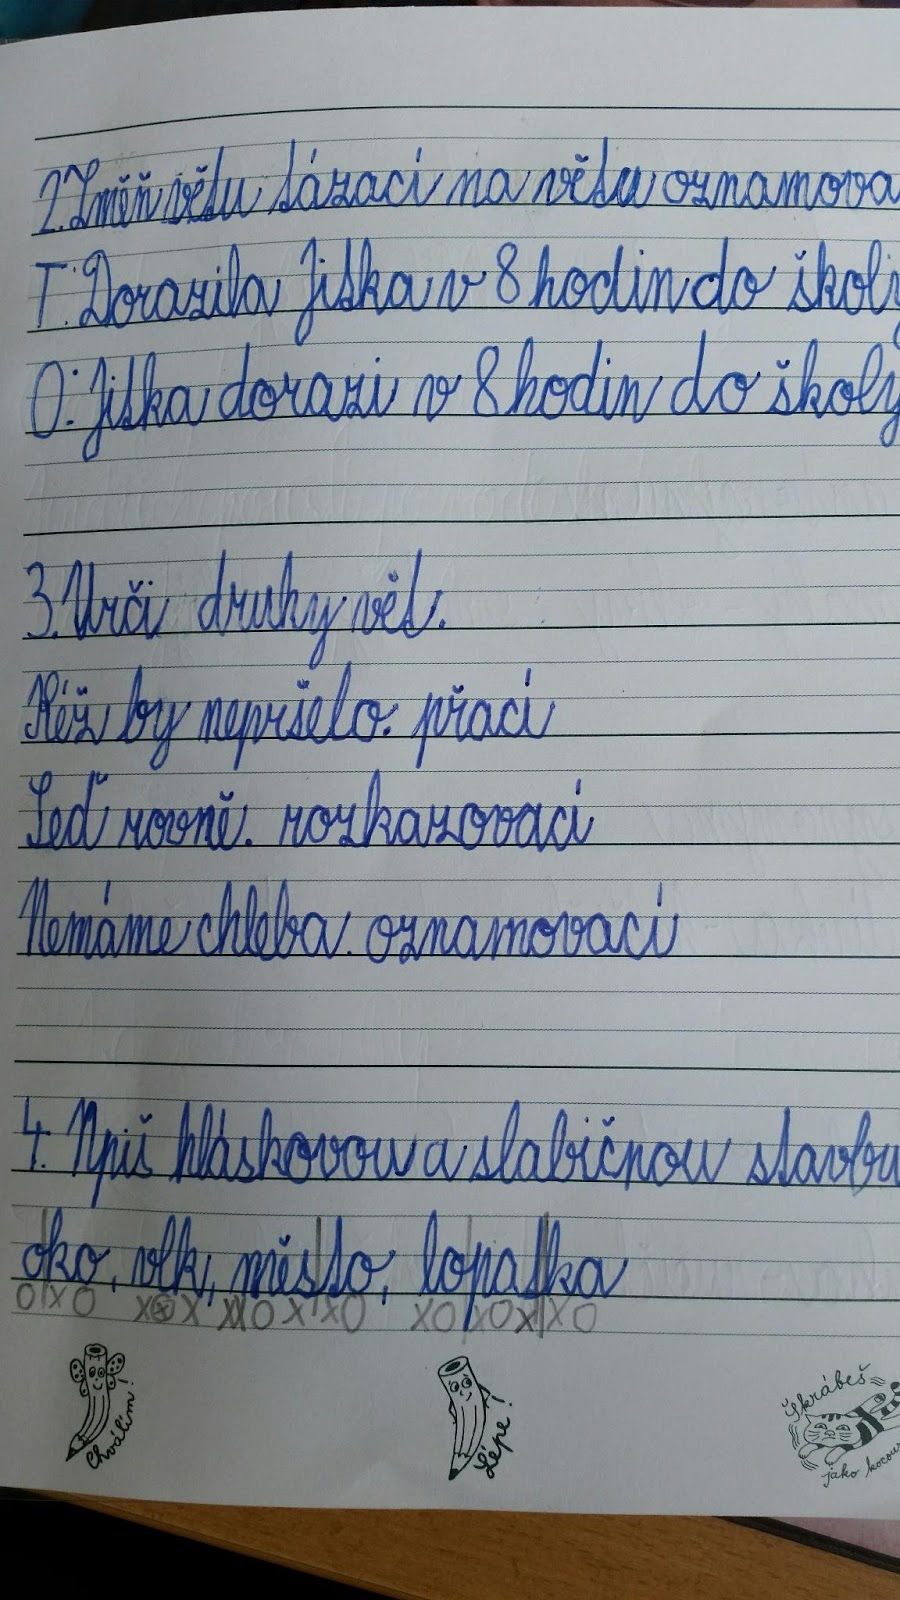 2. Změň větu tázací na větu oznamova
T: Dorazila Jitka v 8 hodin do školy
O: Jitka dorazi v 8 hodin do školy
3. Urči druhy vět.
Kéž by nepršelo. přací
Seď rovně. rozkazovací
Nemáme chleba. oznamovací
4. Npiš hláskovou a slabičnou stavbu
oko, vlk, město, lopatka
O|XO X⊗X XXOX|XO XO|XOX|XO
Chválím! Lépe! Škrábeš
jako kocour